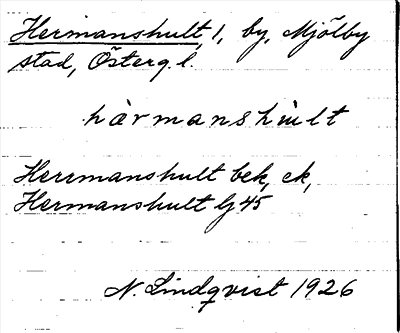 Hermanshult, 1, by, Mjölby
stad, Österg. l.
hàrmanshu̇lt
Herrmanshult bek, ek,
Hermanshult lj 45
N. Lindqvist 1926